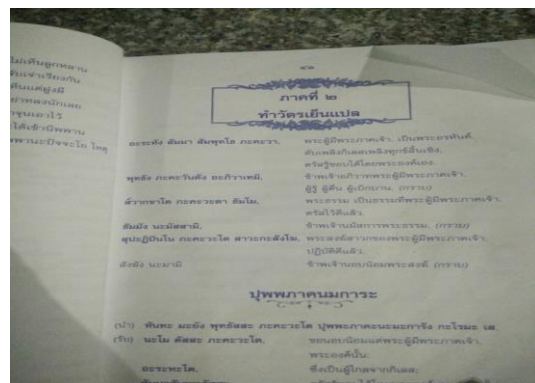 ไม่เห็นลูกหลาน
ภาคที่ ๒
ทำวัตรเย็นแปล
อะระหัง สัมมา สัมพุทโธ ภะคะวา, พระผู้มีพระภาคเจ้า, เป็นพระอรหันต์,
ดับเพลิงกิเลสเพลิงทุกข์สิ้นเชิง,
ตรัสรู้ชอบได้โดยพระองค์เอง.
พุทธัง ภะคะวันตัง อะภิวาเทมิ, ข้าพเจ้าอภิวาทพระผู้มีพระภาคเจ้า,
ผู้รู้ ผู้ตื่น ผู้เบิกบาน. (กราบ)
ส๎วากขาโต ภะคะวะตา ธัมโม, พระธรรม เป็นธรรมที่พระผู้มีพระภาคเจ้า,
ตรัสไว้ดีแล้ว.
ธัมมัง นะมัสสามิ, ข้าพเจ้านมัสการพระธรรม. (กราบ)
สุปะฏิปันโน ภะคะวะโต สาวะกะสังโฆ, พระสงฆ์สาวกของพระผู้มีพระภาคเจ้า,
ปฏิบัติดีแล้ว.
สังฆัง นะมามิ ข้าพเจ้านอบน้อมพระสงฆ์ (กราบ)
ปุพพภาคนมการะ
(นำ) หันทะ มะยัง พุทธัสสะ ภะคะวะโต ปุพพะภาคะนะมะการัง กะโรมะ เส.
(รับ) นะโม ตัสสะ ภะคะวะโต, ขอนอบน้อมแด่พระผู้มีพระภาคเจ้า,
พระองค์นั้น:
อะระหะโต, ซึ่งเป็นผู้ไกลจากกิเลส;